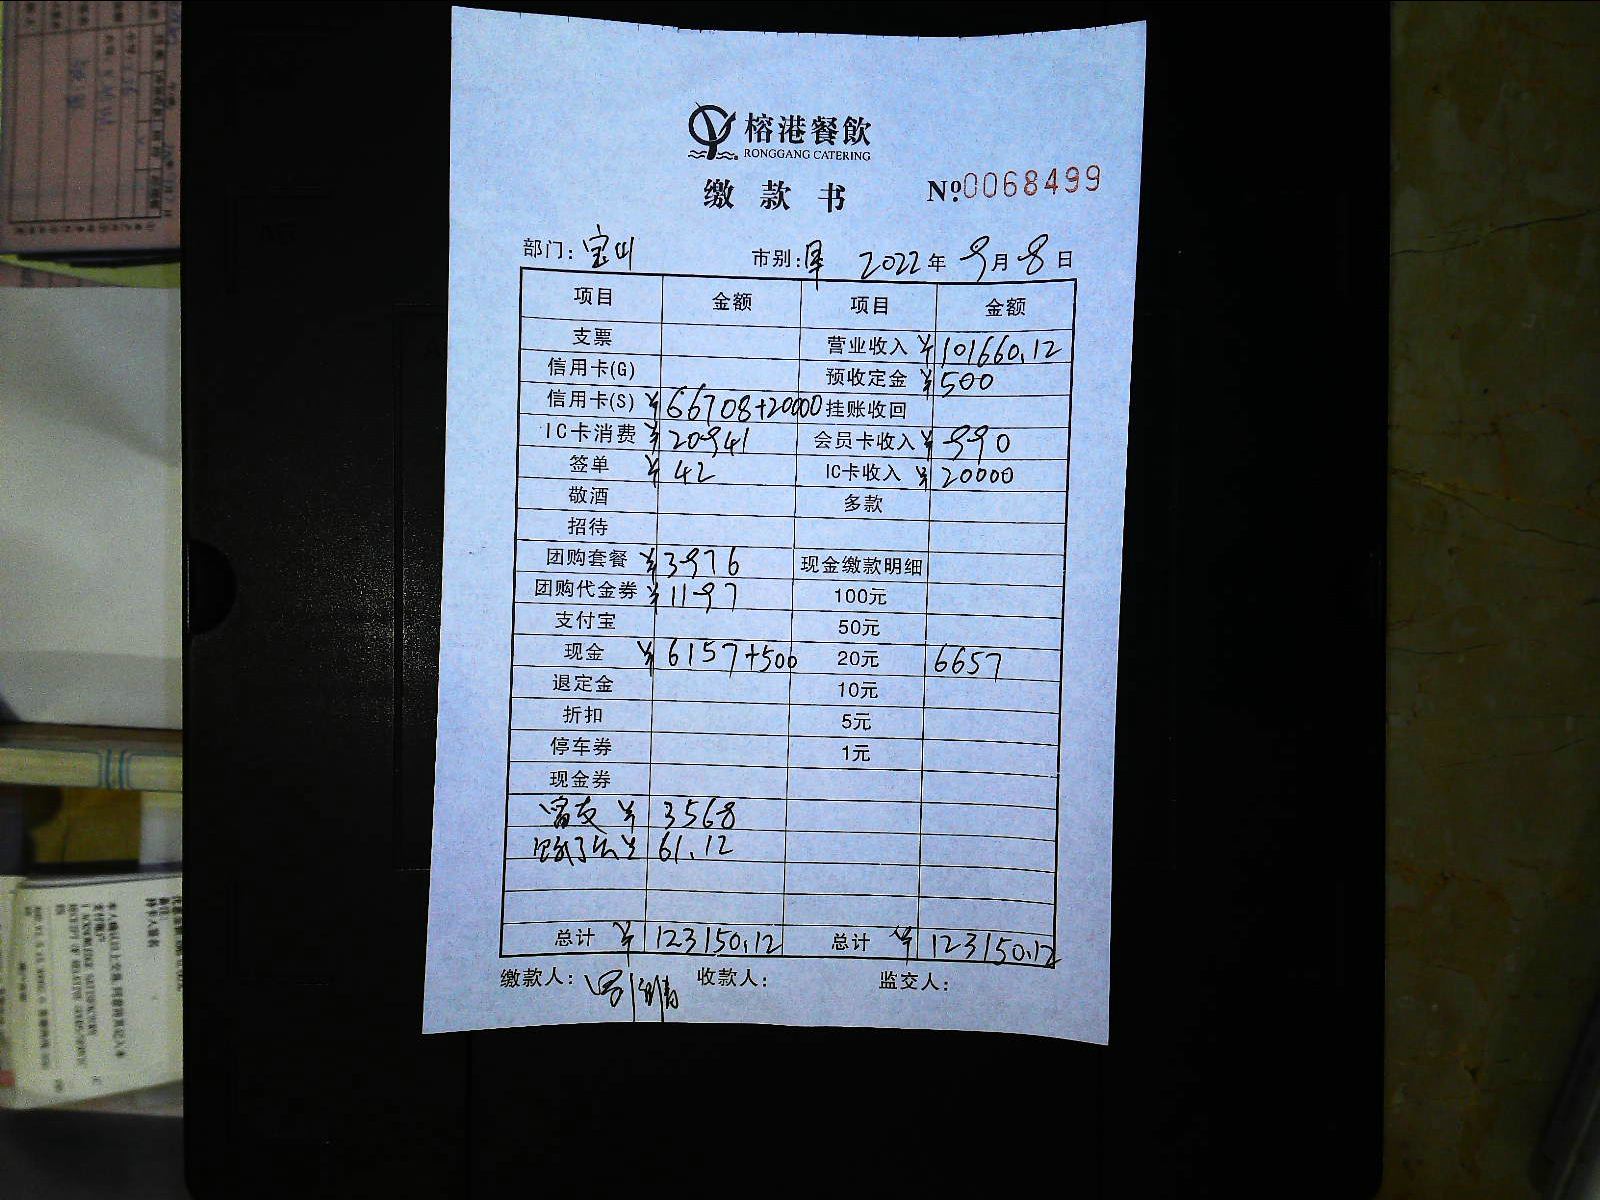 榕港餐飲
RONGGANG CATERING
缴款书 №0068499
部门: 宝山 市别: 2022年9月8日
项目 金额 项目 金额
支票 营业收入 ¥101660.12
信用卡(G) 预收定金 ¥500
信用卡(S) ¥66708+20000 挂账收回
IC卡消费 ¥20941 会员卡收入 ¥990
签单 ¥42 IC卡收入 ¥20000
敬酒 多款
招待
团购套餐 ¥3976 现金缴款明细
团购代金券 ¥1197 100元
支付宝 50元
现金 ¥6157+500 20元 6657
退定金 10元
折扣 5元
停车券 1元
现金券
¥3568
¥61.12
总计 ¥123150.12 总计 ¥123150.12
缴款人: 收款人: 监交人: